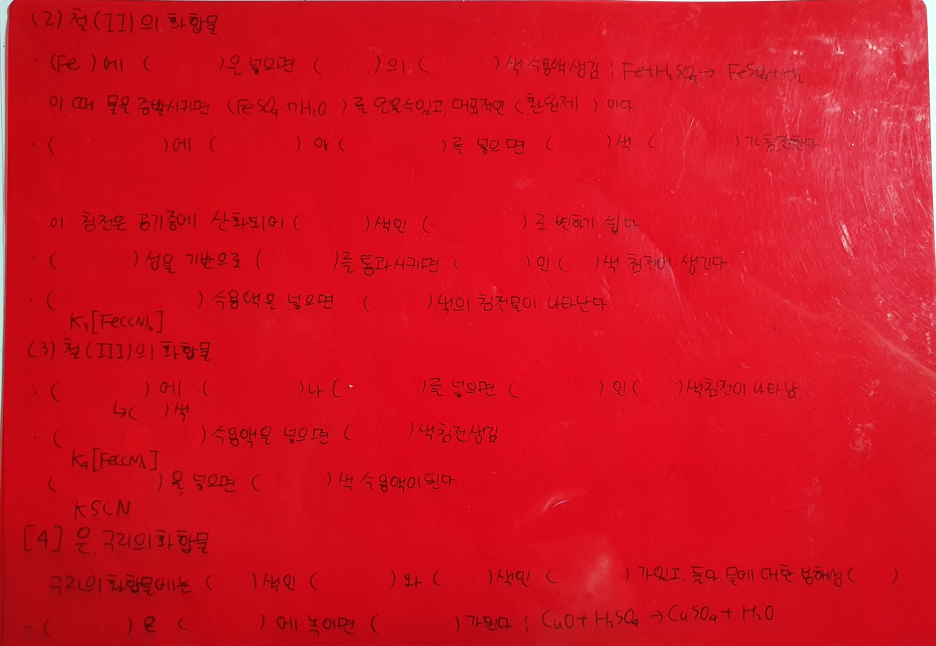 (2) 철(II)의 화합물
· (Fe ) 에 ( )을 넣으면 ( )의 ( )색 수용액 생김 : Fe+H₂SO₄→ FeSO₄+H₂
이 때 물을 증발시키면 (FeSO₄·7H₂O )를 얻을 수 있고, 대표적인 (환원제 ) 이다
· ( )에 ( ) 아 ( )를 넣으면 ( )색 ( )가 침전한다
이 침전은 공기중에 산화되어 ( )색인 ( )로 변하기 쉽다
· ( ) 성을 기반으로 ( )를 통과시키면 ( )인 ( )색 침전이 생긴다.
· ( ) 수용액을 넣으면 ( )색의 침전물이 나타난다
K₃[Fe(CN)₆]
(3) 철(III)의 화합물
· ( ) 에 ( )나 ( )를 넣으면 ( )인 ( )색침전이 나타남.
↳( )색
· ( )수용액을 넣으면 ( )색침전생김
K₄[Fe(CN)₆]
( )을 넣으면 ( )색 수용액이 된다.
KSCN
[4] 은, 구리의 화합물
구리의 화합물에는 ( )색인 ( )와 ( )색인 ( )가 있고, 둘다 물에 대한 용해성( ).
- ( )을 ( )에 녹이면 ( )가 된다 : CuO+H₂SO₄→CuSO₄+H₂O